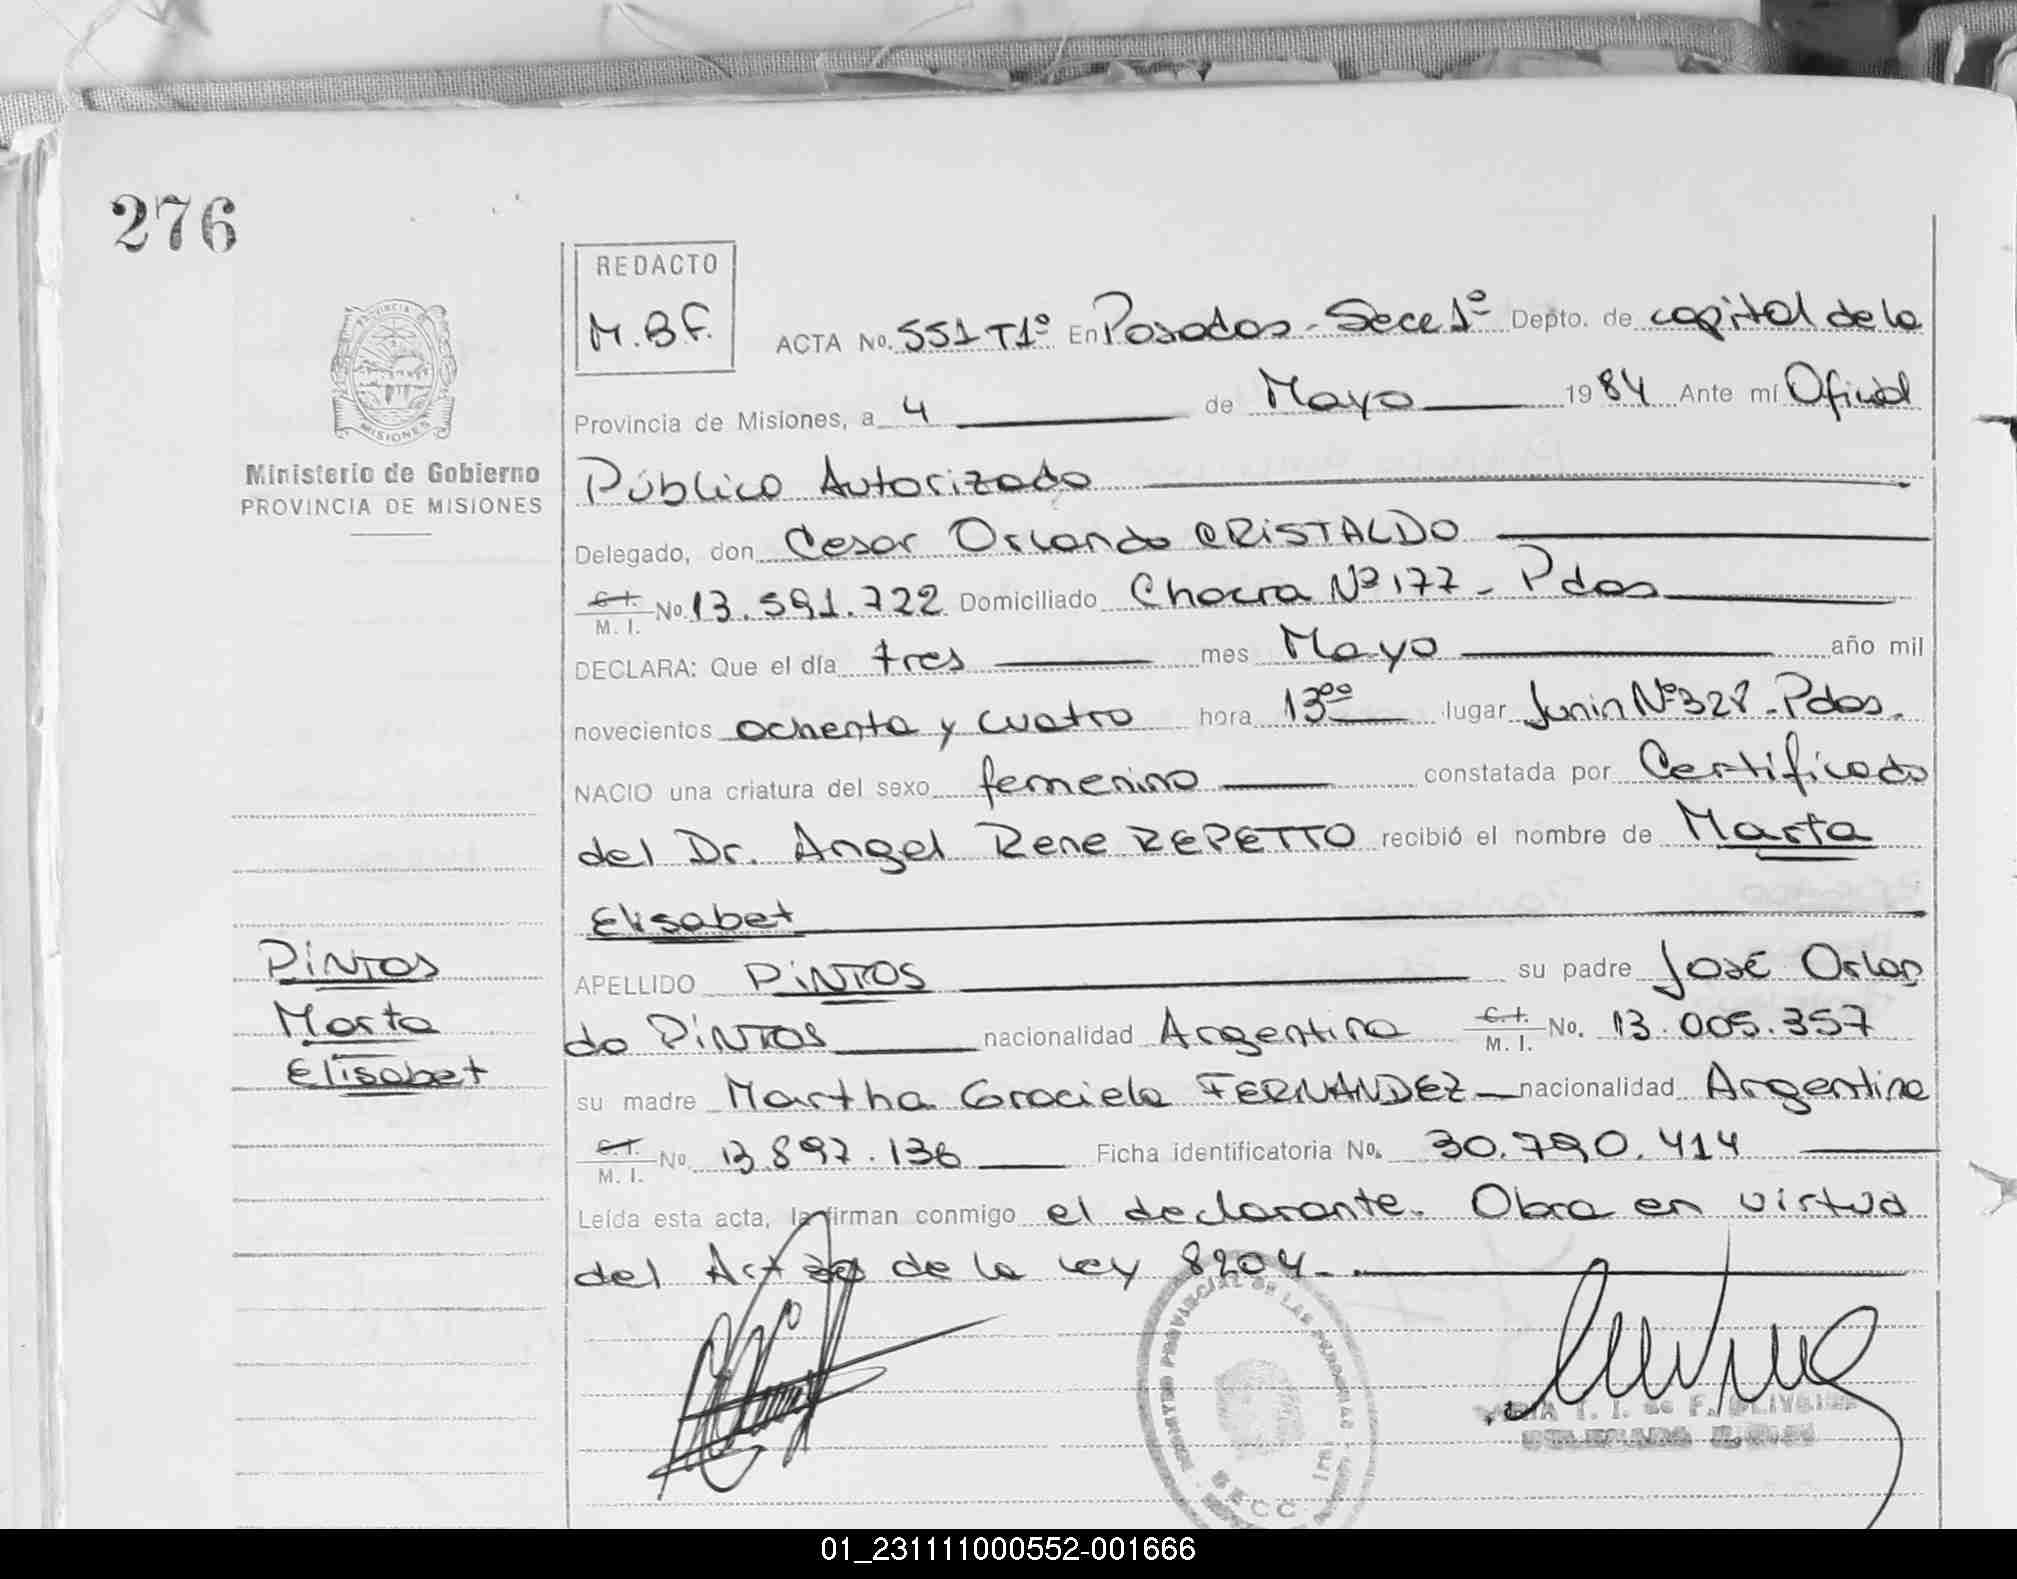 276
REDACTO
M.B.F.
PROVINCIA
MISIONES
Ministerio de Gobierno
PROVINCIA DE MISIONES
ACTA No. 551 T1º En Posadas - Secc 1º Depto. de capital de la
Provincia de Misiones, a 4 de Mayo 1984 Ante mí Oficial
Público Autorizado
Delegado, don Cesar Orlando CRISTALDO
C. I. M. I. No. 13.591.722 Domiciliado Chacra Nº 177 - Pdas
DECLARA: Que el día tres mes Mayo año mil
novecientos ochenta y cuatro hora 13⁰⁰ lugar Junin Nº 328 - Pdas.
NACIO una criatura del sexo femenino constatada por Certificado
del Dr. Angel Rene REPETTO recibió el nombre de Marta
Elisabet
APELLIDO PINTOS su padre José Orlan
do PINTOS nacionalidad Argentina C. I. M. I. No. 13.005.357
su madre Martha Graciela FERNANDEZ nacionalidad Argentina
C. I. M. I. No. 13.897.136 Ficha identificatoria No. 30.790.414
Leída esta acta, la firman conmigo el declarante. Obra en virtud
del Art de la Ley 8204.
PINTOS
Marta
Elisabet
SECC.
01_231111000552-001666